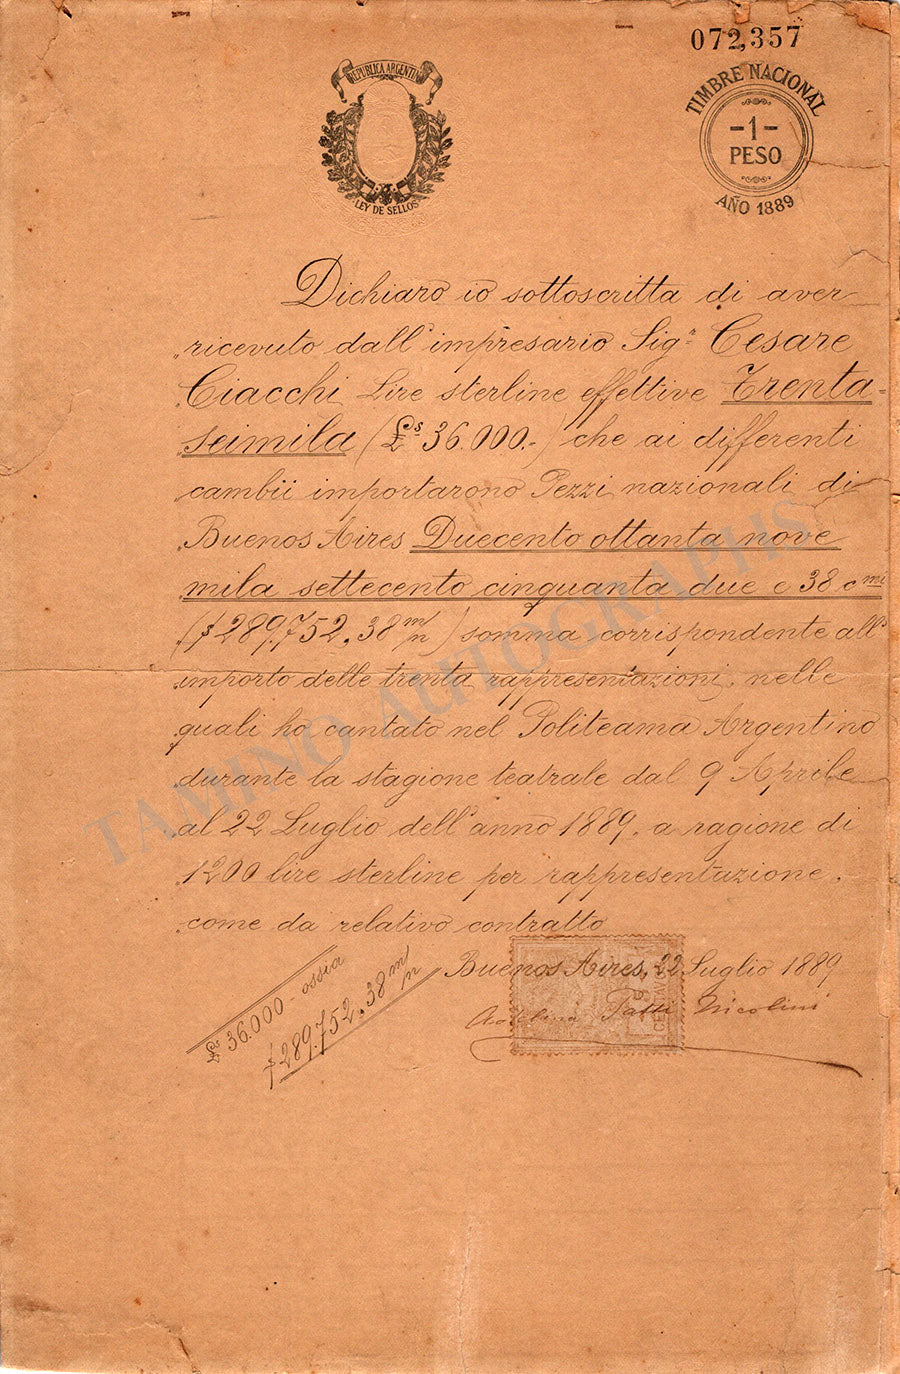 072,357
REPUBLICA ARGENTINA
LEY DE SELLOS
TIMBRE NACIONAL
-1-
PESO
AÑO 1889
Dichiaro io sottoscritta di aver
ricevuto dall'impresario Sigr Cesare
Ciacchi Lire sterline effettive Trenta-
seimila (£s 36.000.-) che ai differenti
cambii importarono Pezzi nazionali di
Buenos Aires Duecento ottanta nove
mila settecento cinquanta due e 38 cmi
($ 289,752.38 m/n) somma corrispondente all'
importo delle trenta rappresentazioni, nelle
quali ho cantato nel Politeama Argentino
durante la stagione teatrale dal 9 Aprile
al 22 Luglio dell'anno 1889. a ragione di
1200 lire sterline per rappresentazione.
come da relativo contratto
Buenos Aires, 22 Luglio 1889
Adelina Patti Nicolini
£s 36.000 - ossia
$ 289.752.38 m/n
CENTAVOS
TAMINO AUTOGRAPHS